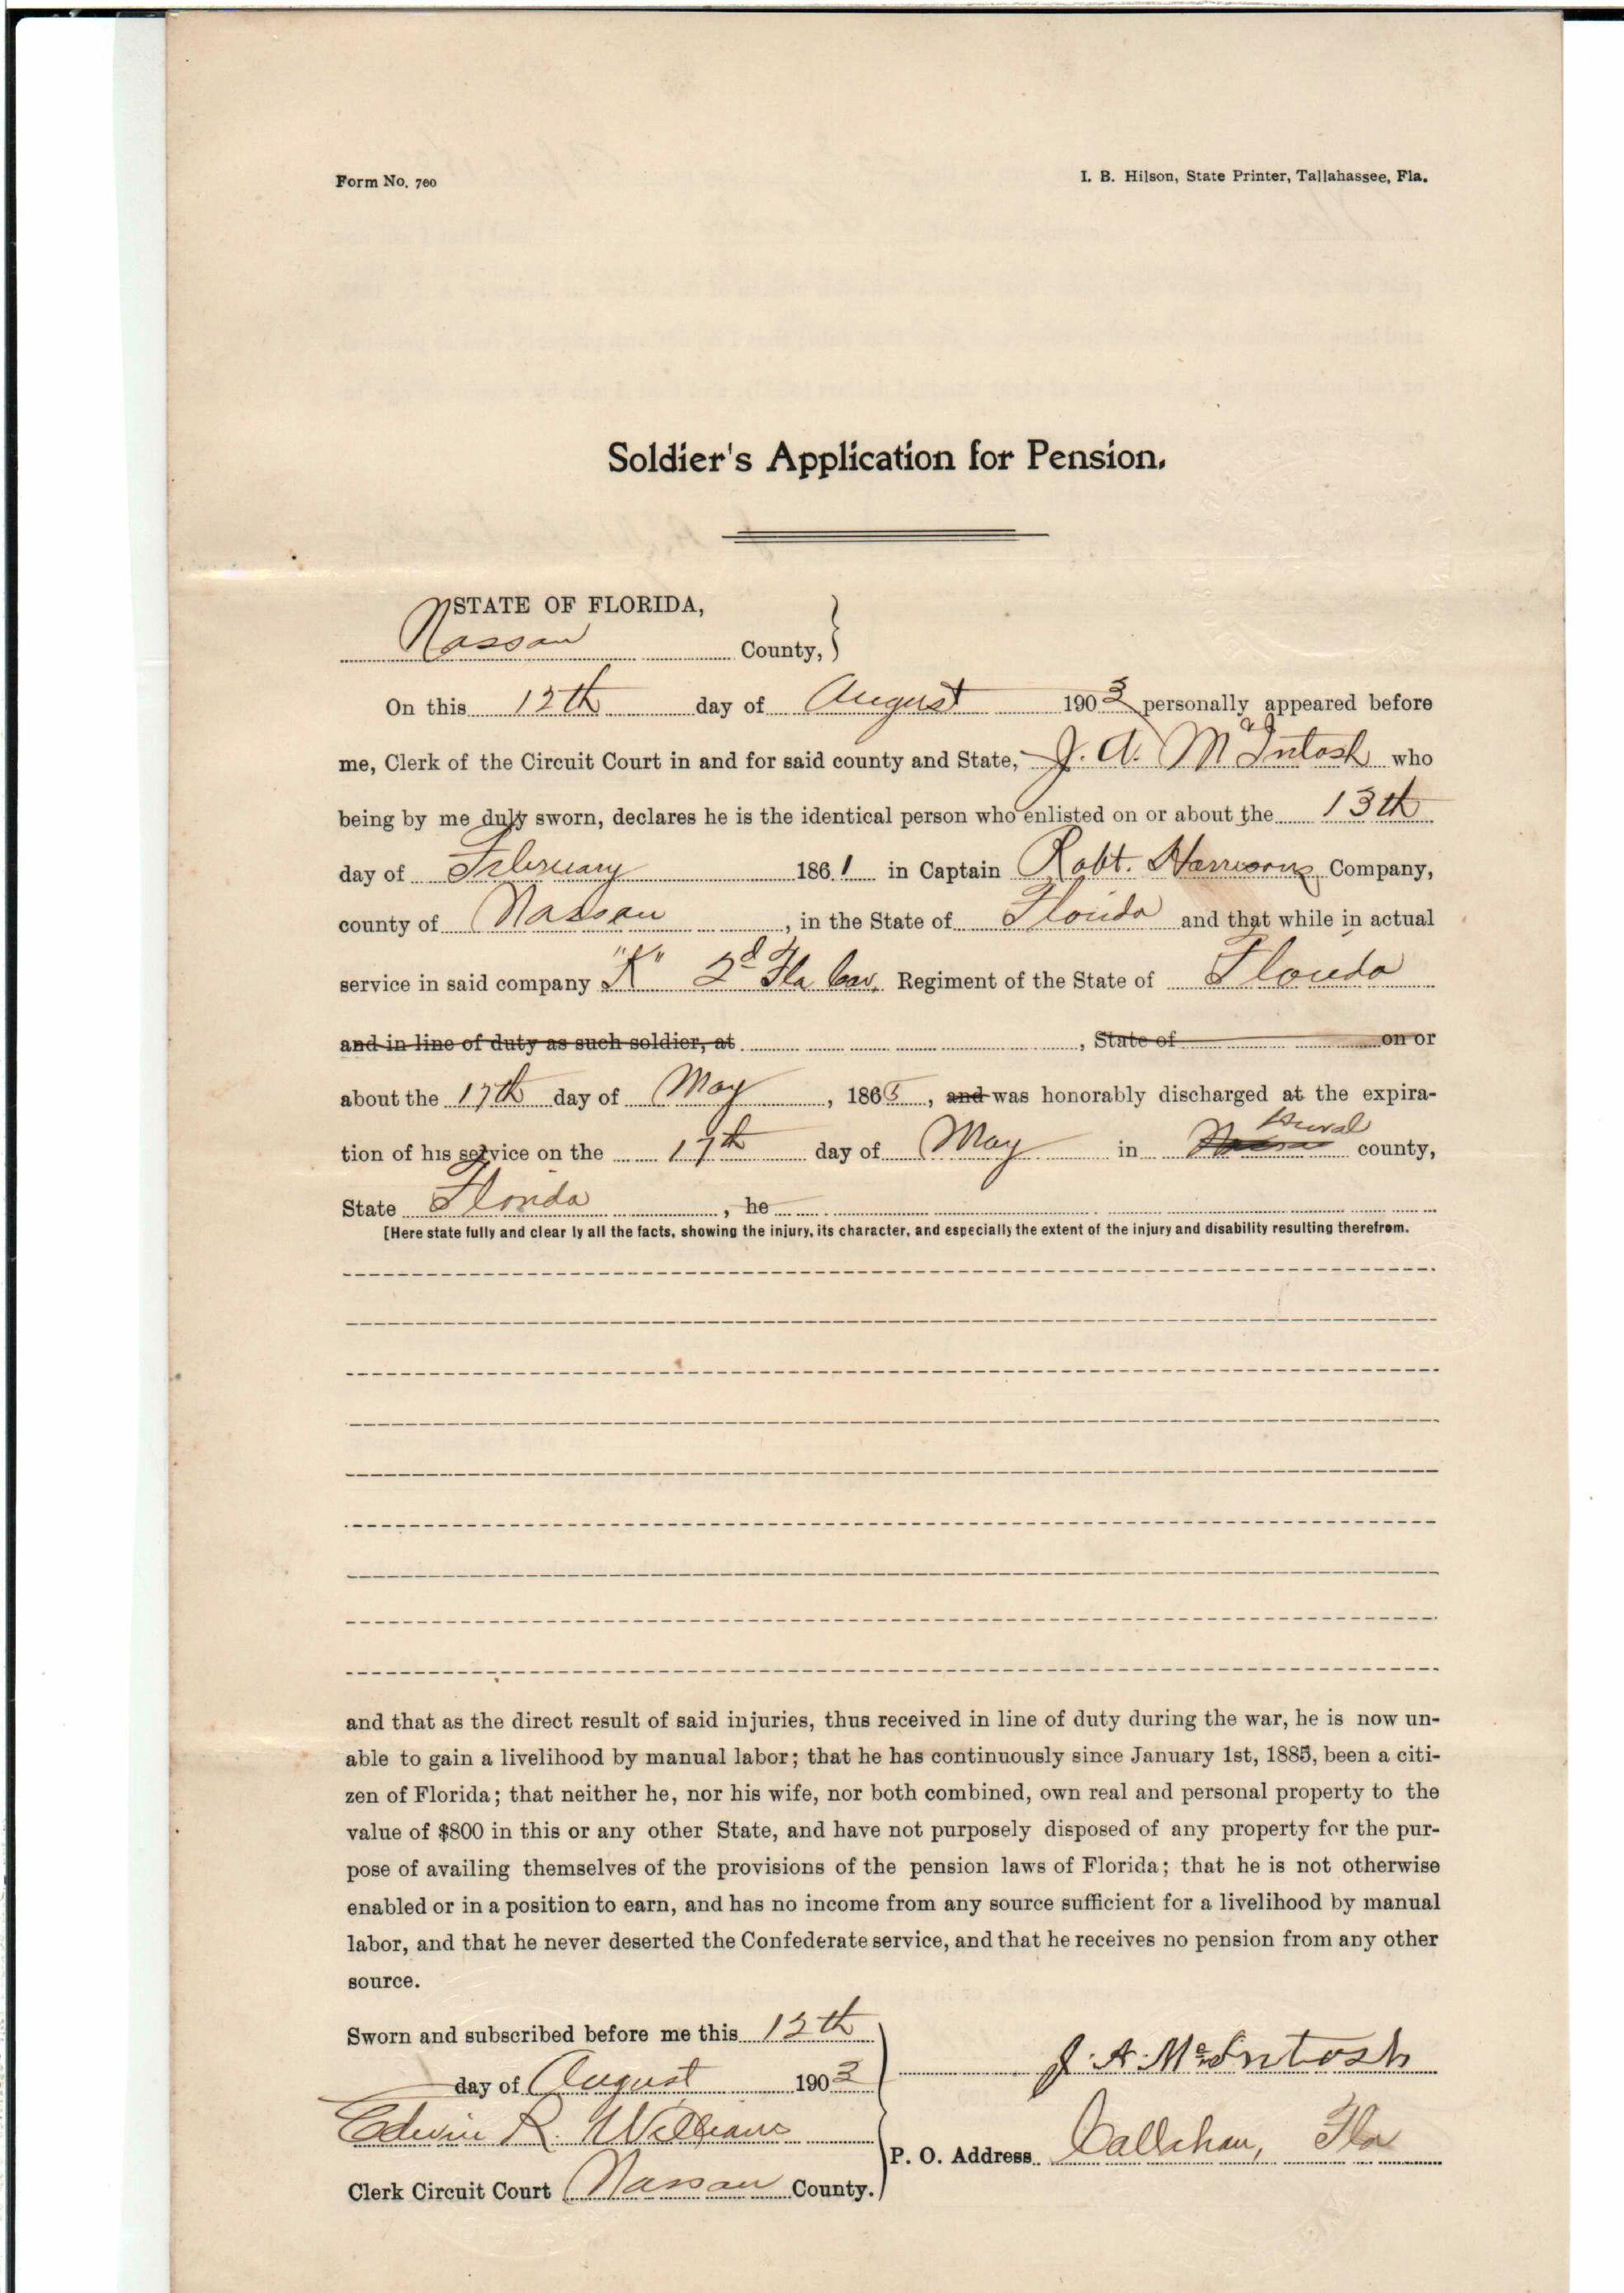 Form No. 700
I. B. Hilson, State Printer, Tallahassee, Fla.
Soldier's Application for Pension.
STATE OF FLORIDA,
Nassau County,
On this 12th day of August 1903 personally appeared before
me, Clerk of the Circuit Court in and for said county and State, J. A. McIntosh who
being by me duly sworn, declares he is the identical person who enlisted on or about the 13th
day of February 1861 in Captain Robt. Harrisons Company,
county of Nassau, in the State of Florida and that while in actual
service in said company "K" 2d Fla Cav. Regiment of the State of Florida
and in line of duty as such soldier, at , State of on or
about the 17th day of May, 1865, and was honorably discharged at the expira-
tion of his service on the 17th day of May in Duval county,
State Florida, he
[Here state fully and clear ly all the facts, showing the injury, its character, and especially the extent of the injury and disability resulting therefrom.
and that as the direct result of said injuries, thus received in line of duty during the war, he is now un-
able to gain a livelihood by manual labor; that he has continuously since January 1st, 1885, been a citi-
zen of Florida; that neither he, nor his wife, nor both combined, own real and personal property to the
value of $800 in this or any other State, and have not purposely disposed of any property for the pur-
pose of availing themselves of the provisions of the pension laws of Florida; that he is not otherwise
enabled or in a position to earn, and has no income from any source sufficient for a livelihood by manual
labor, and that he never deserted the Confederate service, and that he receives no pension from any other
source.
Sworn and subscribed before me this 12th
day of August 1903
J. A. McIntosh
Edwin R. Williams
P. O. Address Callahan, Fla
Clerk Circuit Court Nassau County.